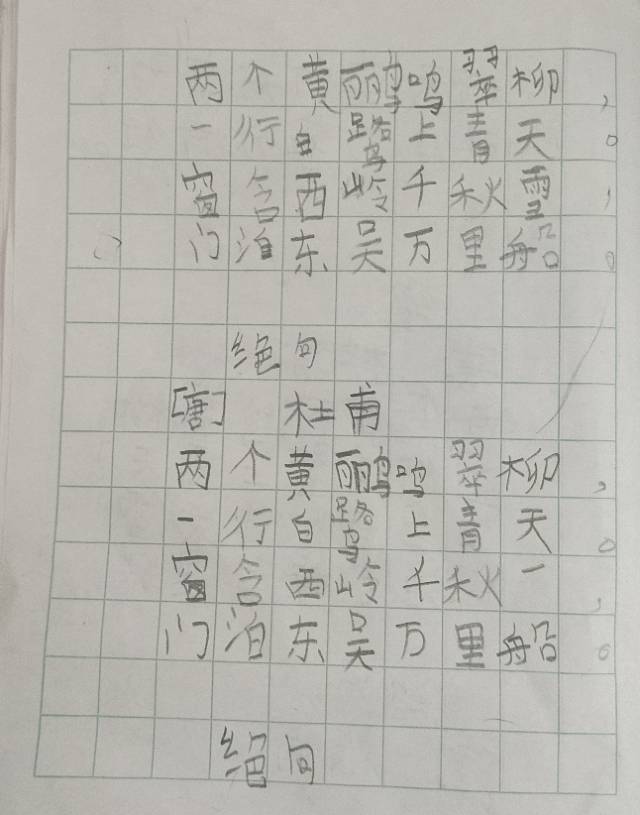 两个黄鹂鸣翠柳，
一行白鹭上青天。
窗含西岭千秋雪，
门泊东吴万里船。
绝句
[唐] 杜甫
两个黄鹂鸣翠柳，
一行白鹭上青天。
窗含西岭千秋一，
门泊东吴万里船。
绝句